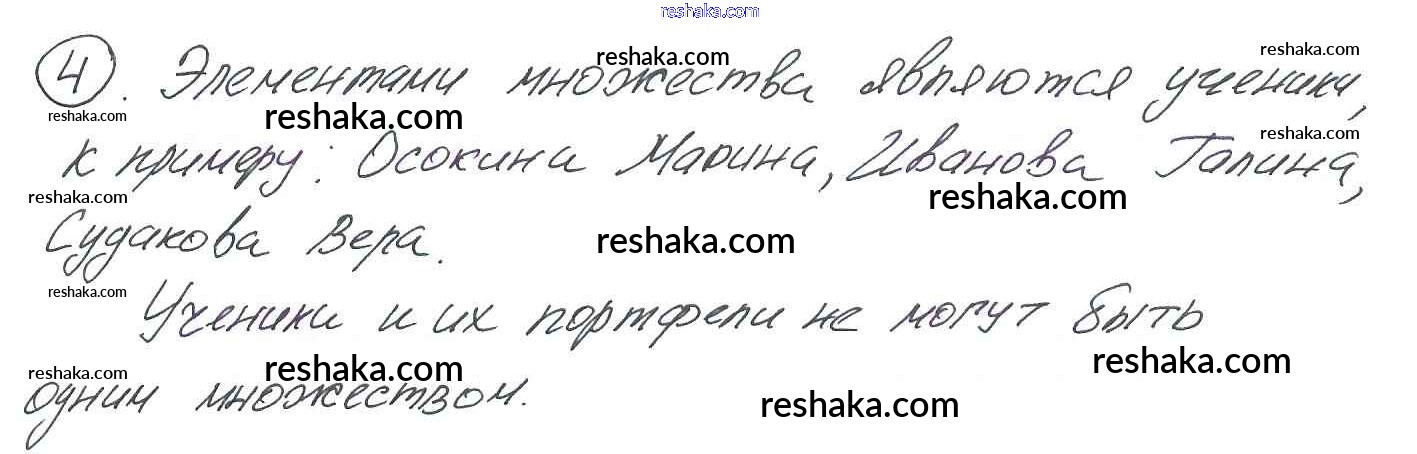 reshaka.com
④. Элементами множества являются ученики,
к примеру: Осокина Марина, Иванова Галина,
Судакова Вера.
Ученики и их портфели не могут быть
одним множеством.
reshaka.com
reshaka.com
reshaka.com
reshaka.com
reshaka.com
reshaka.com
reshaka.com
reshaka.com
reshaka.com
reshaka.com
reshaka.com
reshaka.com
reshaka.com